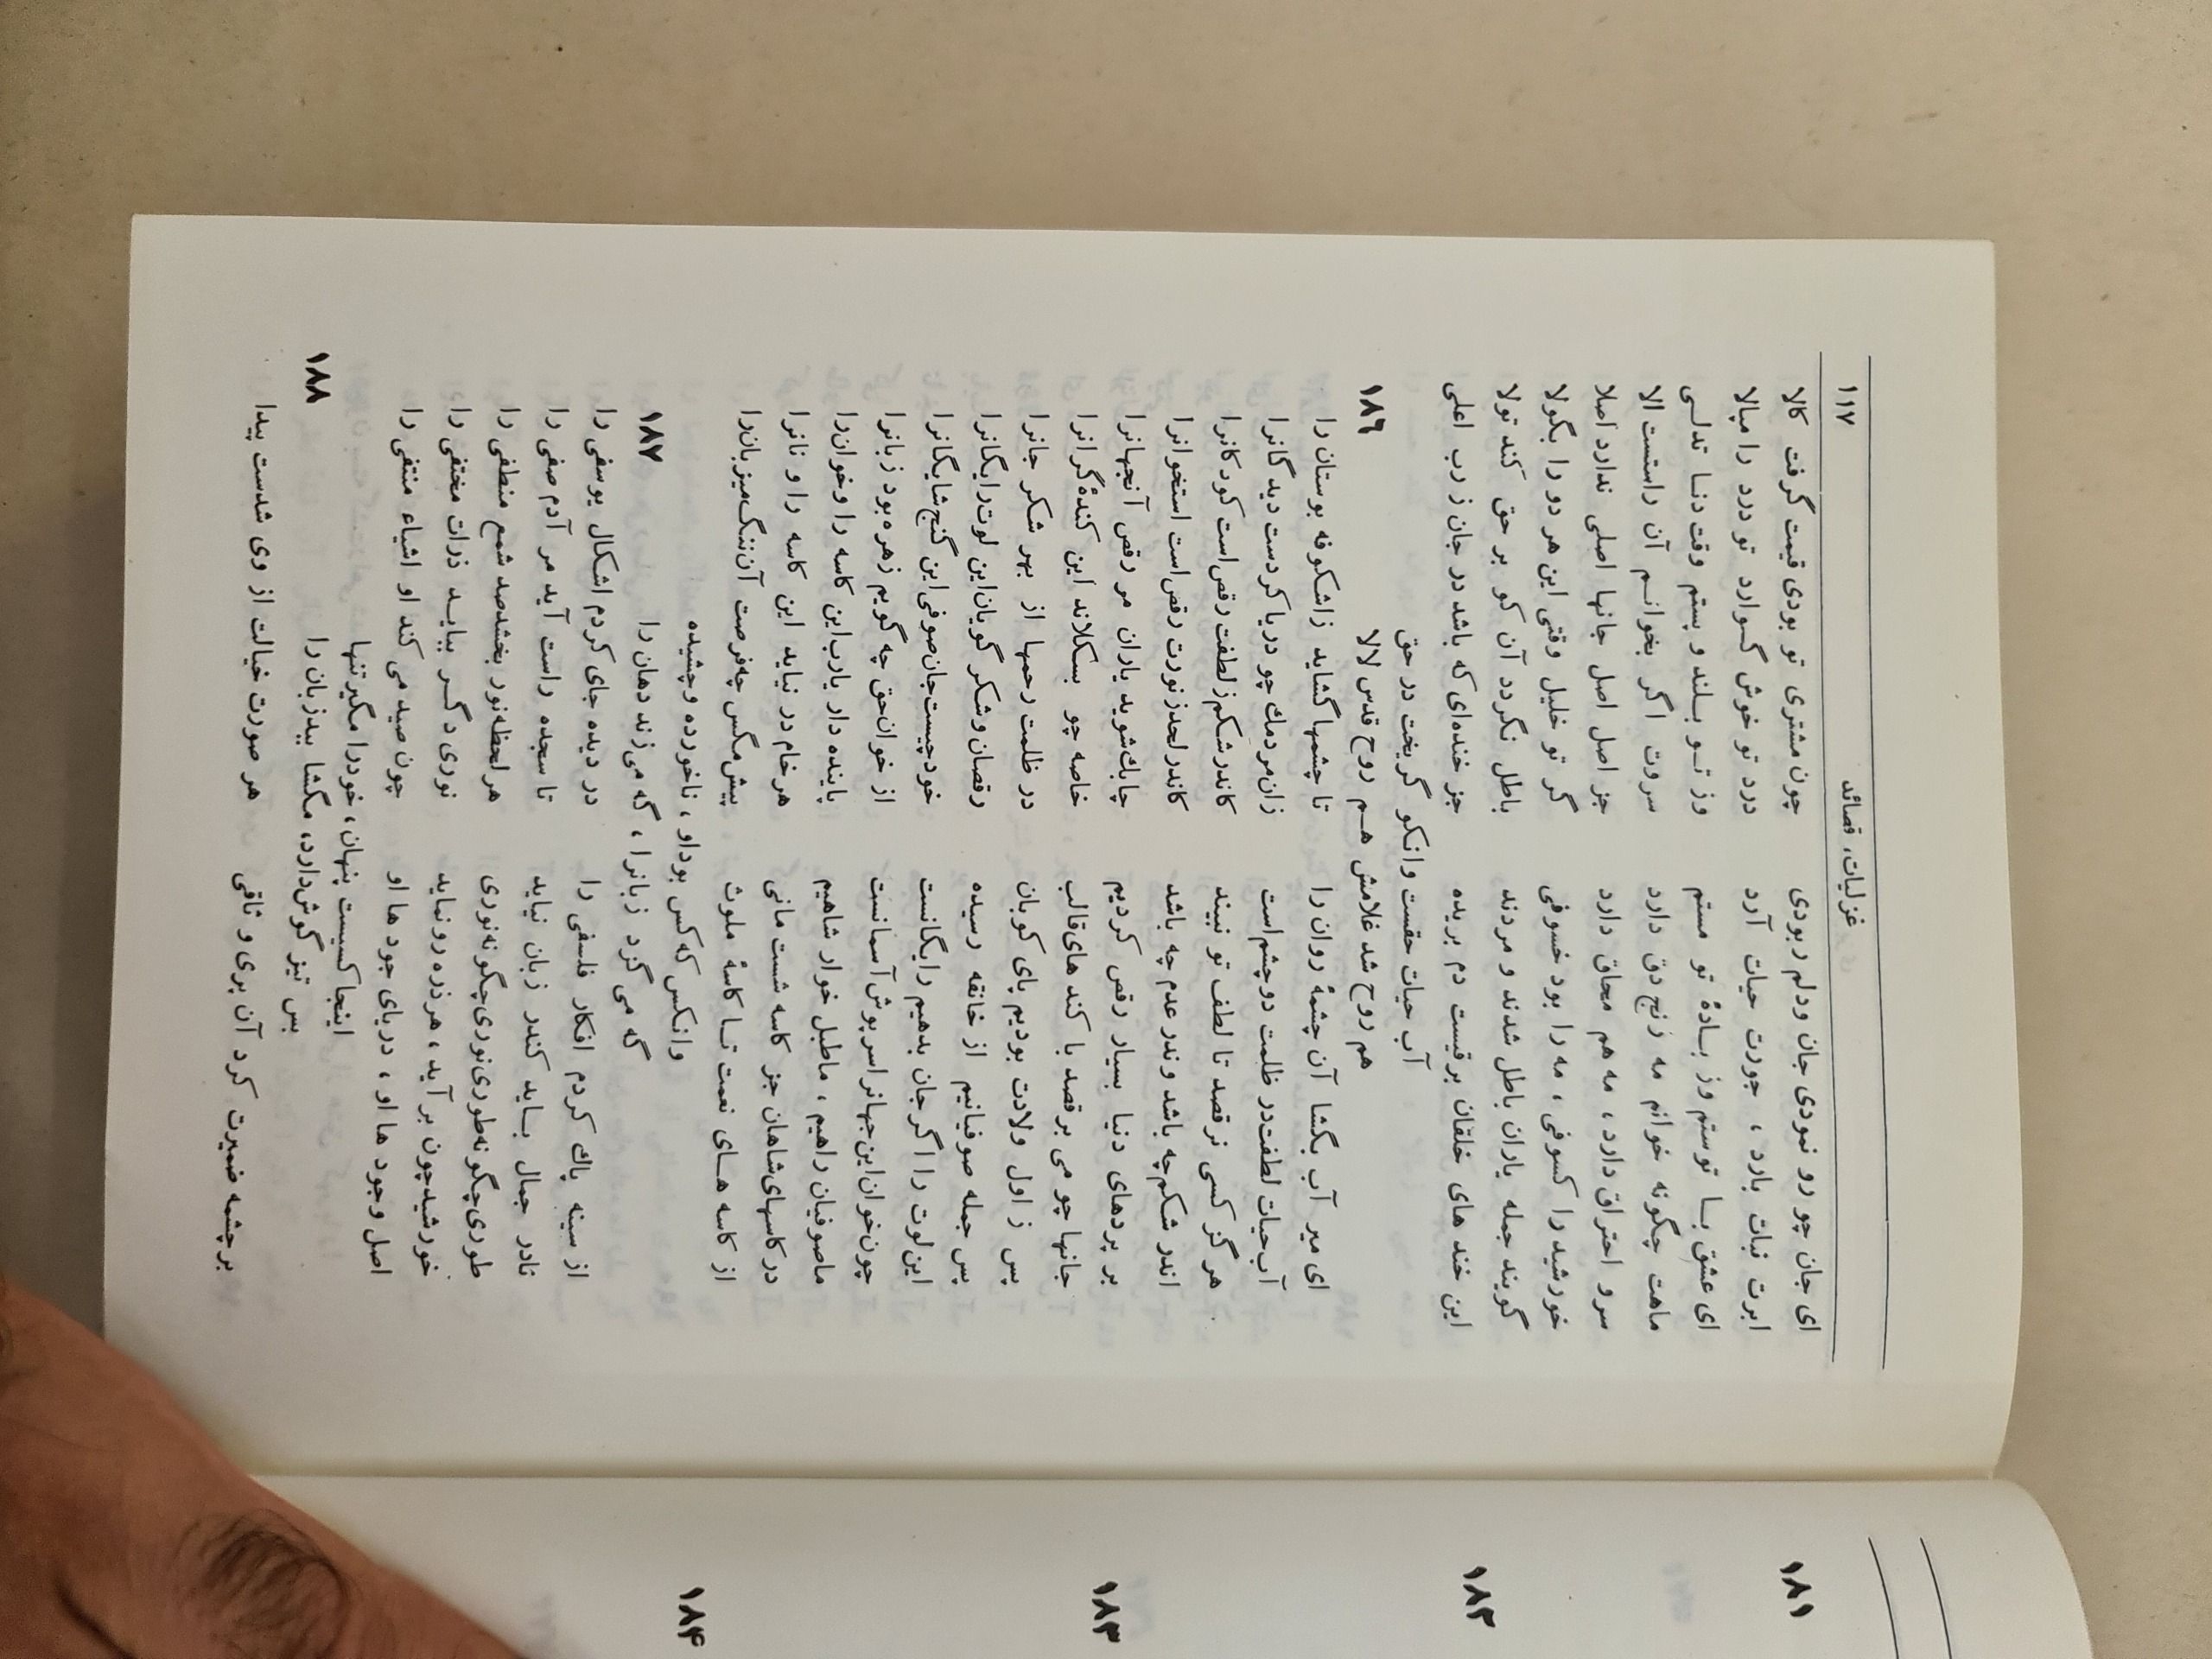 ۱۱۷
غزلیات، قصائد
ای جان چو رو نمودی جان و دلم ربودی چون مشتری تو بودی قیمت گرفت کالا
ابرت نبات بارد ، جورت حیات آرد درد تو خوش گوارد تو درد را مپالا
ای عشق با توستم وز بادهٔ تو مستم وز تو بلند و پستم وقت دنا تدلی
ماهت چگونه خوانم مه رنج دق دارد سروت اگر بخوانم آن راستست الا
سرو احتراق دارد ، مه هم محاق دارد جز اصل اصل جانها اصلی ندارد اصلا
خورشید را کسوفی ، مه را بود خسوفی گر تو خلیل وقتی این هر دو را بگولا
گویند جمله یاران باطل شدند و مردند باطل نگردد آن کو بر حق کند تولا
این خنده های خلقان برقیست دم بریده جز خنده‌ای که باشد در جان ز رب اعلی
آب حیات حقست وانکو گریخت در حق
هم روح شد غلامش هم روح قدس لالا
۱۸٦
ای میر آب بگشا آن چشمهٔ روان را تا چشمها گشاید زاشکوفه بوستان را
آب‌حیات لطفت‌در ظلمت دو چشم‌است زان‌مردمك چو دریا کردست دیدگانرا
هرگز کسی نرقصد تا لطف تو نبیند کاندر شکم ز لطفت رقص است کودکانرا
اندر شکم‌چه باشد وندر عدم چه باشد کاندر لحد ز نورت رقص است استخوانرا
بر پردهای دنیا بسیار رقص کردیم چابك‌شوید یاران مر رقص آنجهانرا
جانها چو می برقصد با کند های قالب خاصه چو بسکلاند این کندهٔ گرانرا
پس ز اول ولادت بودیم پای کوبان در ظلمت رحمها از بهر شکر جانرا
پس جمله صوفیانیم از خانقه رسیده رقصان و شکر گویان‌این لوت‌رایگانرا
این لوت را اگر جان بدهیم رایگانست خودچیست‌جان‌صوفی‌این گنج‌شایگانرا
چون‌خوان‌این‌جهانراسرپوش‌آسمانست از خوان‌حق چه گویم زهره بود زبانرا
ماصوفیان راهیم ، ماطبل خوار شاهیم پاینده دار یارب‌این کاسه را وخوان‌را
در کاسهای‌شاهان جز کاسه شست مانی هرخام در نیابد این کاسه را و نانرا
از کاسه هـای نعمت تـا کاسهٔ ملوث پیش‌مگس چه‌فرصت آن‌ننگ‌میزبان‌را
وانکس که کس بوداو ، ناخورده وچشیده
گه می گزد زبانرا ، گه می‌زند دهان را
۱۸۷
از سینه پاك کردم افکار فلسفی را در دیده جای کردم اشکال یوسفی را
نادر جمال باید کندر زبان نیاید تا سجده راست آید مر آدم صفی را
طوری‌چگونه‌طوری‌نوری‌چگونه‌نوری هر‌لحظه‌نور بخشدصد شمع منطفی را
خورشیدچون بر آید ، هرذره رونماید نوری دگـر ببایـد ذرات مختفی را
اصل وجود ها او ، دریای جود ها او چون صید می کند او اشیاء منتفی را
اینجا کسیست پنهان، خودرا مگیرتنها
بس تیز گوش‌دارد، مگشا ببدزبان را
۱۸۸
بر چشمه ضمیرت کرد آن پری و ثاقی هر صورت خیالت از وی شدست پیدا
۱۸۱
۱۸۲
۱۸۳
۱۸۴